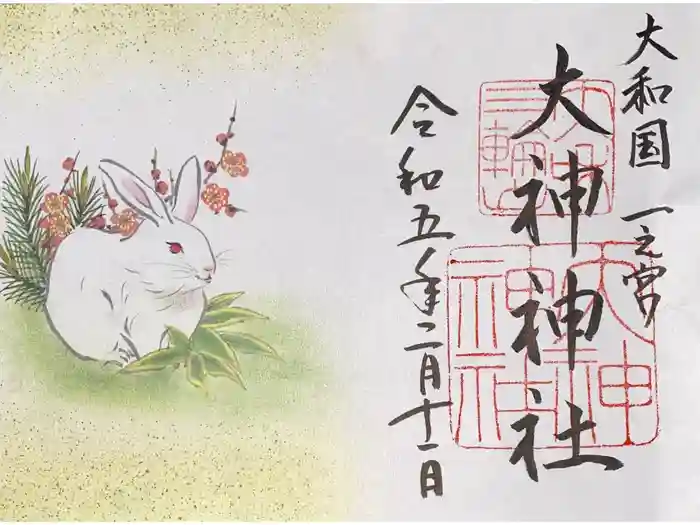 大和国 一之宮
大神神社
令和五年二月十一日
大神神社